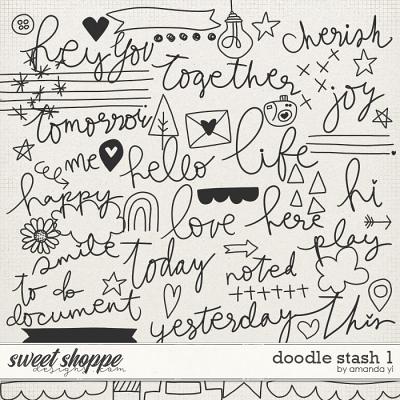 hey you
cherish
together
joy
tomorrow
life
me
hello
happy
hi
love
here
play
smile
today
noted
to do
document
yesterday
This
sweet shoppe
designs.com
doodle stash 1
by amanda yi